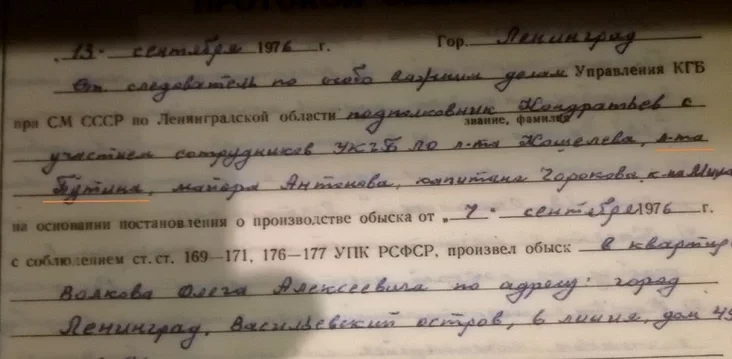 ПРОТОКОЛ
„13“ сентября 1976 г. Гор. Ленинград
Ст. следователь по особо важным делам Управления КГБ
при СМ СССР по Ленинградской области подполковник Кондратьев с
звание, фамилия
участием сотрудников УКГБ ЛО л-та Кошелева, л-та
Путина, майора Антонова, капитана к-на
на основании постановления о производстве обыска от „7“ сентября 1976 г.
с соблюдением ст. ст. 169—171, 176—177 УПК РСФСР, произвел обыск в квартир
Волкова Олега Алексеевича по адресу: город
Ленинград, Васильевский остров, 6 линия, дом